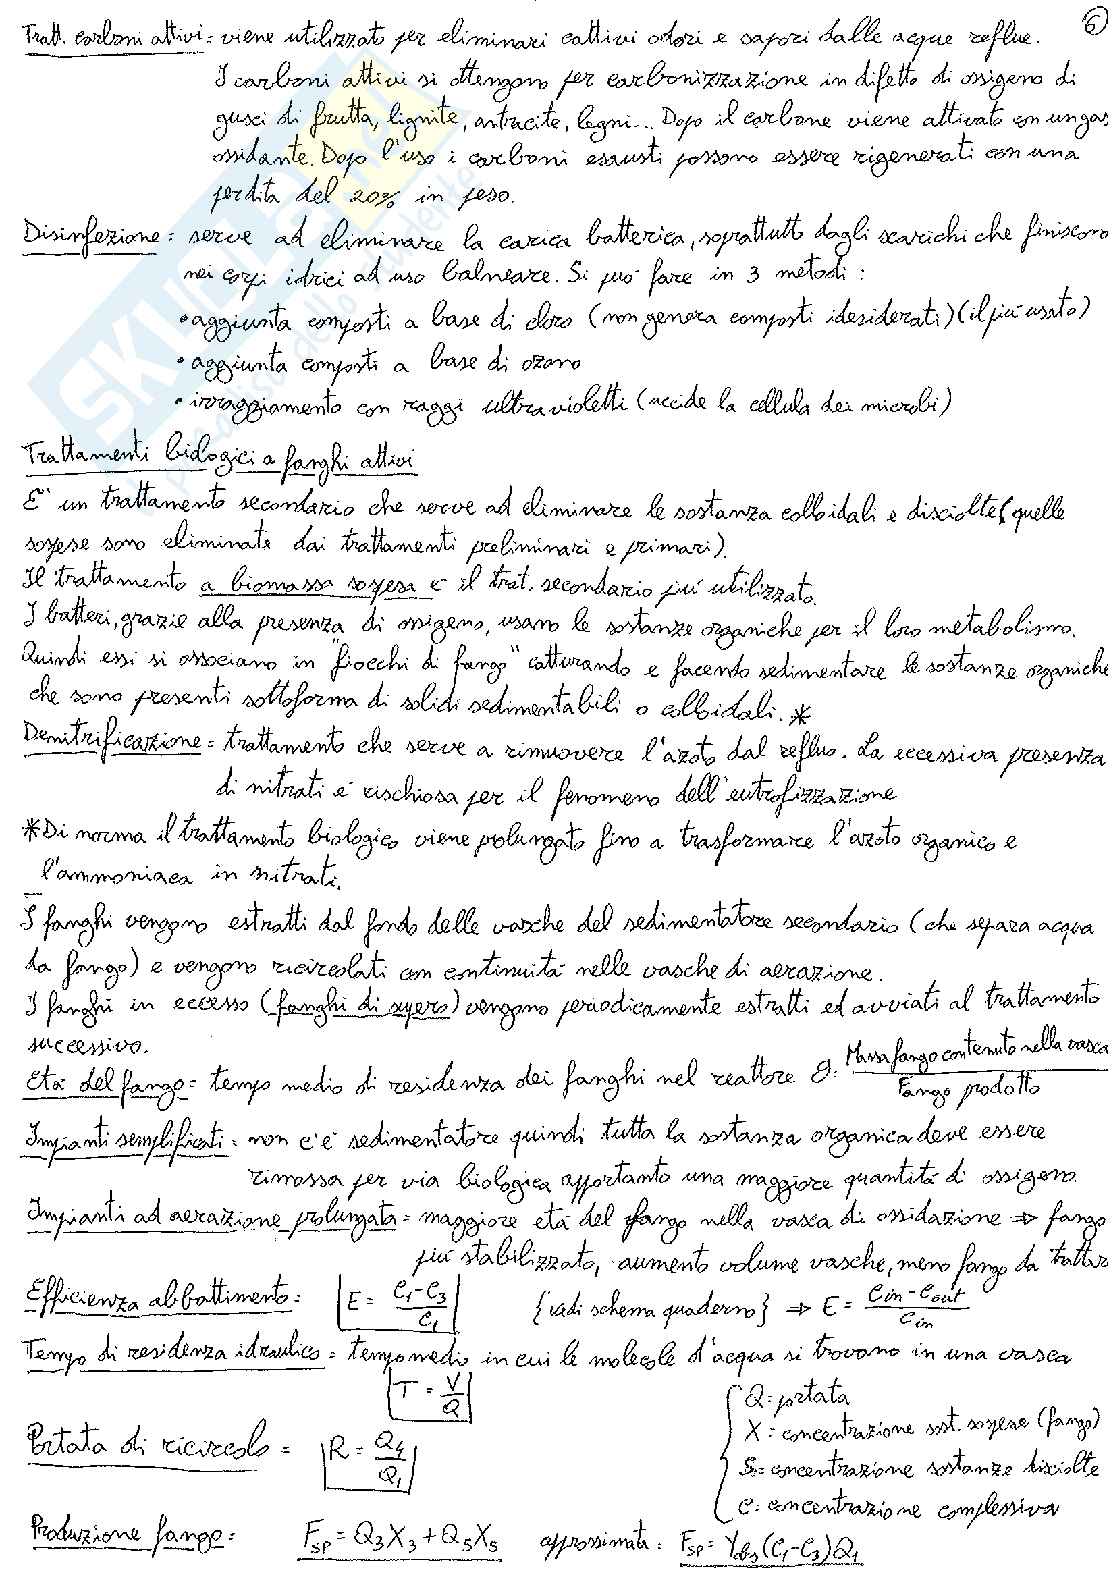 6
Tratt. carboni attivi = viene utilizzato per eliminari cattivi odori e sapori dalle acque reflue.
I carboni attivi si ottengono per carbonizzazione in difetto di ossigeno di
gusci di frutta, lignite, antracite, legni... Dopo il carbone viene attivato con un gas
ossidante. Dopo l'uso i carboni esausti possono essere rigenerati con una
perdita del 20% in peso.
Disinfezione = serve ad eliminare la carica batterica, soprattutto dagli scarichi che finiscono
nei corpi idrici ad uso balneare. Si può fare in 3 metodi:
• aggiunta composti a base di cloro (non genera composti idesiderati) (il più usato)
• aggiunta composti a base di ozono
• irraggiamento con raggi ultravioletti (uccide la cellula dei microbi)
Trattamenti biologici a fanghi attivi
E' un trattamento secondario che serve ad eliminare le sostanza colloidali e disciolte (quelle
sospese sono eliminate dai trattamenti preliminari e primari).
Il trattamento a biomassa sospesa è il trat. secondario più utilizzato.
I batteri, grazie alla presenza di ossigeno, usano le sostanze organiche per il loro metabolismo.
Quindi essi si associano in "fiocchi di fango" catturando e facendo sedimentare le sostanze organiche
che sono presenti sottoforma di solidi sedimentabili o colloidali. *
Denitrificazione = trattamento che serve a rimuovere l'azoto dal refluo. La eccessiva presenza
di nitrati è rischiosa per il fenomeno dell'eutrofizzazione
*Di norma il trattamento biologico viene prolungato fino a trasformare l'azoto organico e
l'ammoniaca in nitrati.
I fanghi vengono estratti dal fondo delle vasche del sedimentatore secondario (che separa acqua
da fango) e vengono ricircolati con continuità nelle vasche di aerazione.
I fanghi in eccesso (fanghi di supero) vengono periodicamente estratti ed avviati al trattamento
successivo.
Età del fango = tempo medio di residenza dei fanghi nel reattore θ = Massa fango contenuto nella vasca
Fango prodotto
Impianti semplificati = non c'è sedimentatore quindi tutta la sostanza organica deve essere
rimossa per via biologica apportanto una maggiore quantità di ossigeno.
Impianti ad aerazione prolungata = maggiore età del fango nella vasca di ossidazione ⇒ fango
più stabilizzato, aumento volume vasche, meno fango da trattar
Efficienza abbattimento = E = C1-C3 / C1 {vadi schema quaderno} ⇒ E = Cin - Cout / Cin
Tempo di residenza idraulico = tempo medio in cui le molecole d'acqua si trovano in una vasca
T = V/Q
Q = portata
X = concentrazione sost. sospese (fango)
Portata di ricircolo = R = Q4/Q1
S = concentrazione sostanze disciolte
C = concentrazione complessiva
Produzione fango = Fsp = Q3X3 + Q5X5 approssimata: Fsp = Yobs (C1-C3) Q1